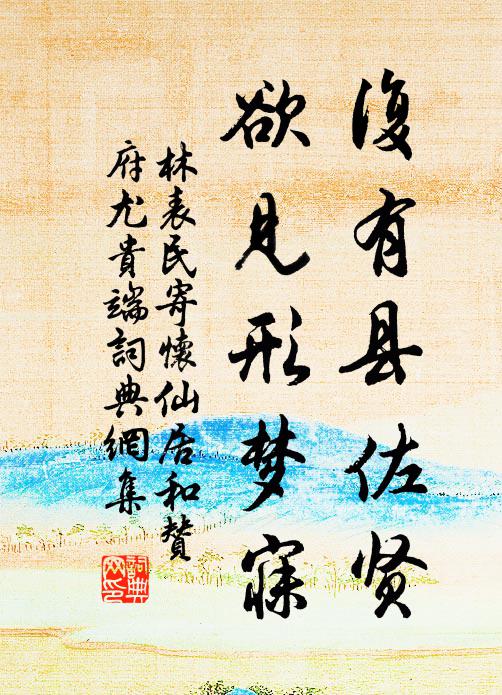 復有县佐贤
欲见形梦寐
林表民寄懷仙居和贊
府尤貴端詞典網集
詞典网印